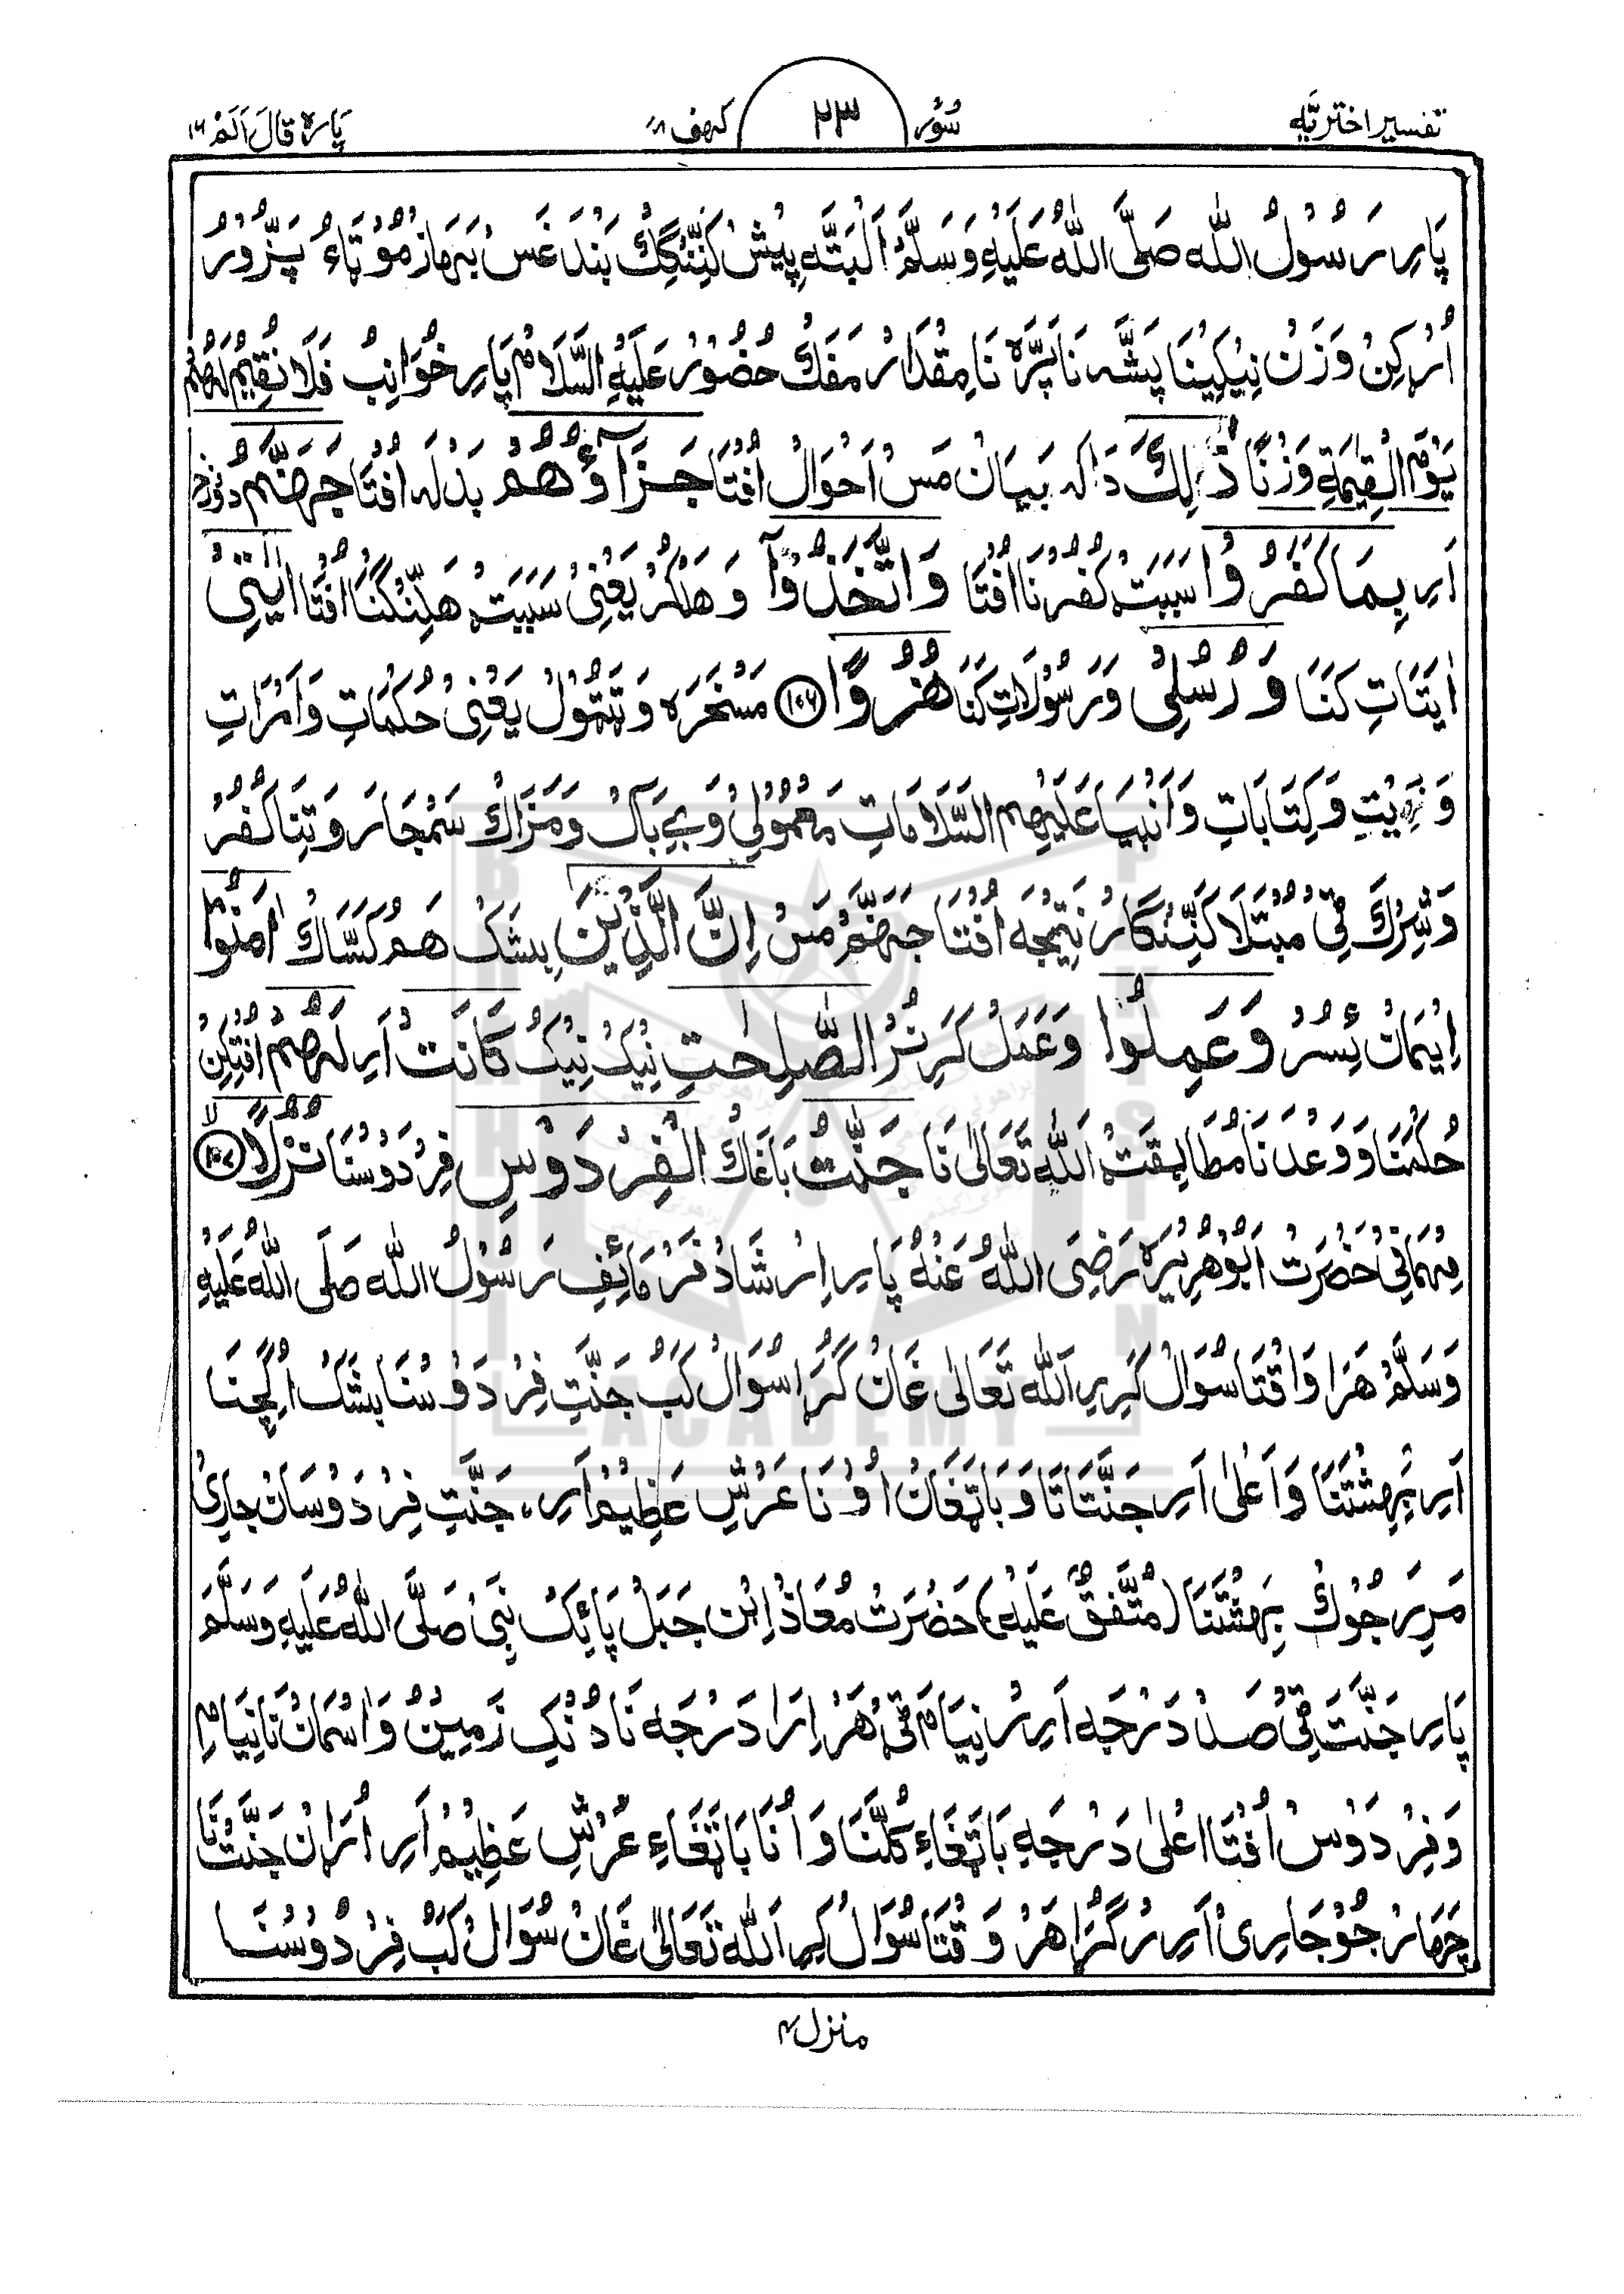 تفسیر اختریَّه
سُوْرَ ۲۳ کہف ۱۸
پَارہ قَالَ اَلَمْ ۱۶
پَارِر رَسُوْلُ اللّٰہ صَلَّی اللّٰہُ عَلَیْہِ وَسَلَّمْ اَلْبَتَّہ پِیْش کَنِّنْگِکْ بَنْدَغَسْ بَہَازْ مُوْٹَاءُ پَزُّوْرُ
اُرْکِنْ وَزَنْ نِیْکِیْنَا پَشَّہ نَا پَرَّہ نَا مِقْدَارْ مَفَکْ حُضُوْرْ عَلَیْہِ السَّلَامْ پَارِر خُوَانِبْ فَلَا نُقِیْمُ لَھُمْ
یَوْمَ الْقِیٰمَۃِ وَزْنًا ذٰلِکَ دَاکہ بَیَانْ مَسْ اَحْوَالْ اُفْتَا جَزَآؤُھُمْ بَدْلَہ اُفْتَا جَہَنَّمُ دوزخ
اَرِ بِمَا کَفَرُوْا سَبَبَتْ کُفْرْنَا اُفْتَا وَاتَّخَذُوْٓا وَھَلْکُرْ یَعْنِیْ سَبَبَتْ ھَلِّنْگْنَا اُفْتَا اٰیٰتِیْ
اٰیَتَاتِ کَنَنَا وَرُسُلِیْ وَرَسُوْلَاتِ کَنَا ھُزُوًا ۱۰۶ مَسْخَرَہ وَتَہُوْلْ یَعْنِیْ حُکْمَاتِ وَاَمْرَاتِ
وَنَہِیْتِ وَکِتَابَاتِ وَاَنْبِیَا عَلَیْھِمُ السَّلَامَاتِ مَعْمُوْلِیْ وَبے بَاکْ وَمَزَاکْ سَمْجَارَ وَتِنَا کُفْرُ
وَشِرْکَ ٹِی مُبْتَلَا کَنِّنْگَارْ نَتِیْجَہ اُفْتَا جَہَنَّمْ مَسْ اِنَّ الَّذِیْنَ بِشَکْ ھَمْ کَسَّاکْ اٰمَنُوْا
اِیْمَانْ ہِسُرْ وَعَمِلُوا وَعَمَلْ کَرِنُرْ الصّٰلِحٰتِ نِیْکْ نِیْکْ کَانَتْ اَرِ لَھُمْ اُفْتِکِنْ
حُکْمَنَا وَوَعْدَنَا مُطَابِقَتْ اَللّٰہ تَعَالٰی نَا جَنّٰتُ بَاغَاکْ الْفِرْدَوْسِ فِرْدَوْسْنَا نُزُلًا ۱۰۷
مِہْمَانِیْ حَضْرَتْ اَبُوْھُرَیْرَہ رَضِیَ اللّٰہُ عَنْہُ پَارِر اِرْشَادْ فَرْمَائِفِ رَسُوْلُ اللّٰہ صَلَی اللّٰہُ عَلَیْہِ
وَسَلَّمْ ھَرَا وَاقْتَا سُوَالْ کَرِرِ اَللّٰہ تَعَالٰی غَانْ گُڑَا سُوَالْ کَبْ جَنَّتِ فِرْدَوْسْنَا بِشَکْ اُلِّچِنَا
اَرِ بِہِشْتَنَا وَاَعْلٰی اَرِ جَنَّتَاتَا وَبَاتْغَانْ اُوْنَا عَرْشِ عَظِیْمْ اَرِ، جَنَّتِ فِرْدَوْسَانْ جَارِیْ
مَرِرَ جُوْکْ بِہِشْتَنَا (مُتَّفَقْ عَلَیْہِ) حَضْرَتْ مُعَاذْ اِبْن جَبَلْ پَائِکْ نَبِیْ صَلَّی اللّٰہُ عَلَیْہِ وَسَلَّمَ
پَارِر جَنَّتَ ٹِی صَدْ دَرْجَہ اَرِرْ نِیَامْ ٹِی ھَرْ اِرَا دَرْجَہ نَا دُنْکِ زَمِیْنْ وَاسْمَانْ نَا نِیَامِ
وَفِرْدَوْسْ اُفْتَا اعْلٰی دَرْجَہِ بَاتْغَاءِ کُلّنَا وَاُنَا بَاتْغَاءِ عَرْشِ عَظِیْمْ اَرِ اُرَانْ جَنَّتْنَا
چَہَارْ جُوْ جَارِیْ اَرِرْ گُڑَا ھَرْ وَقْتَا سُوَالْ کِہ اَللّٰہ تَعَالٰی غَانْ سُوَالْ کَبْ فِرْدَوْسْنَا
منزل ۴
BRAHUI ACADEMY PAKISTAN